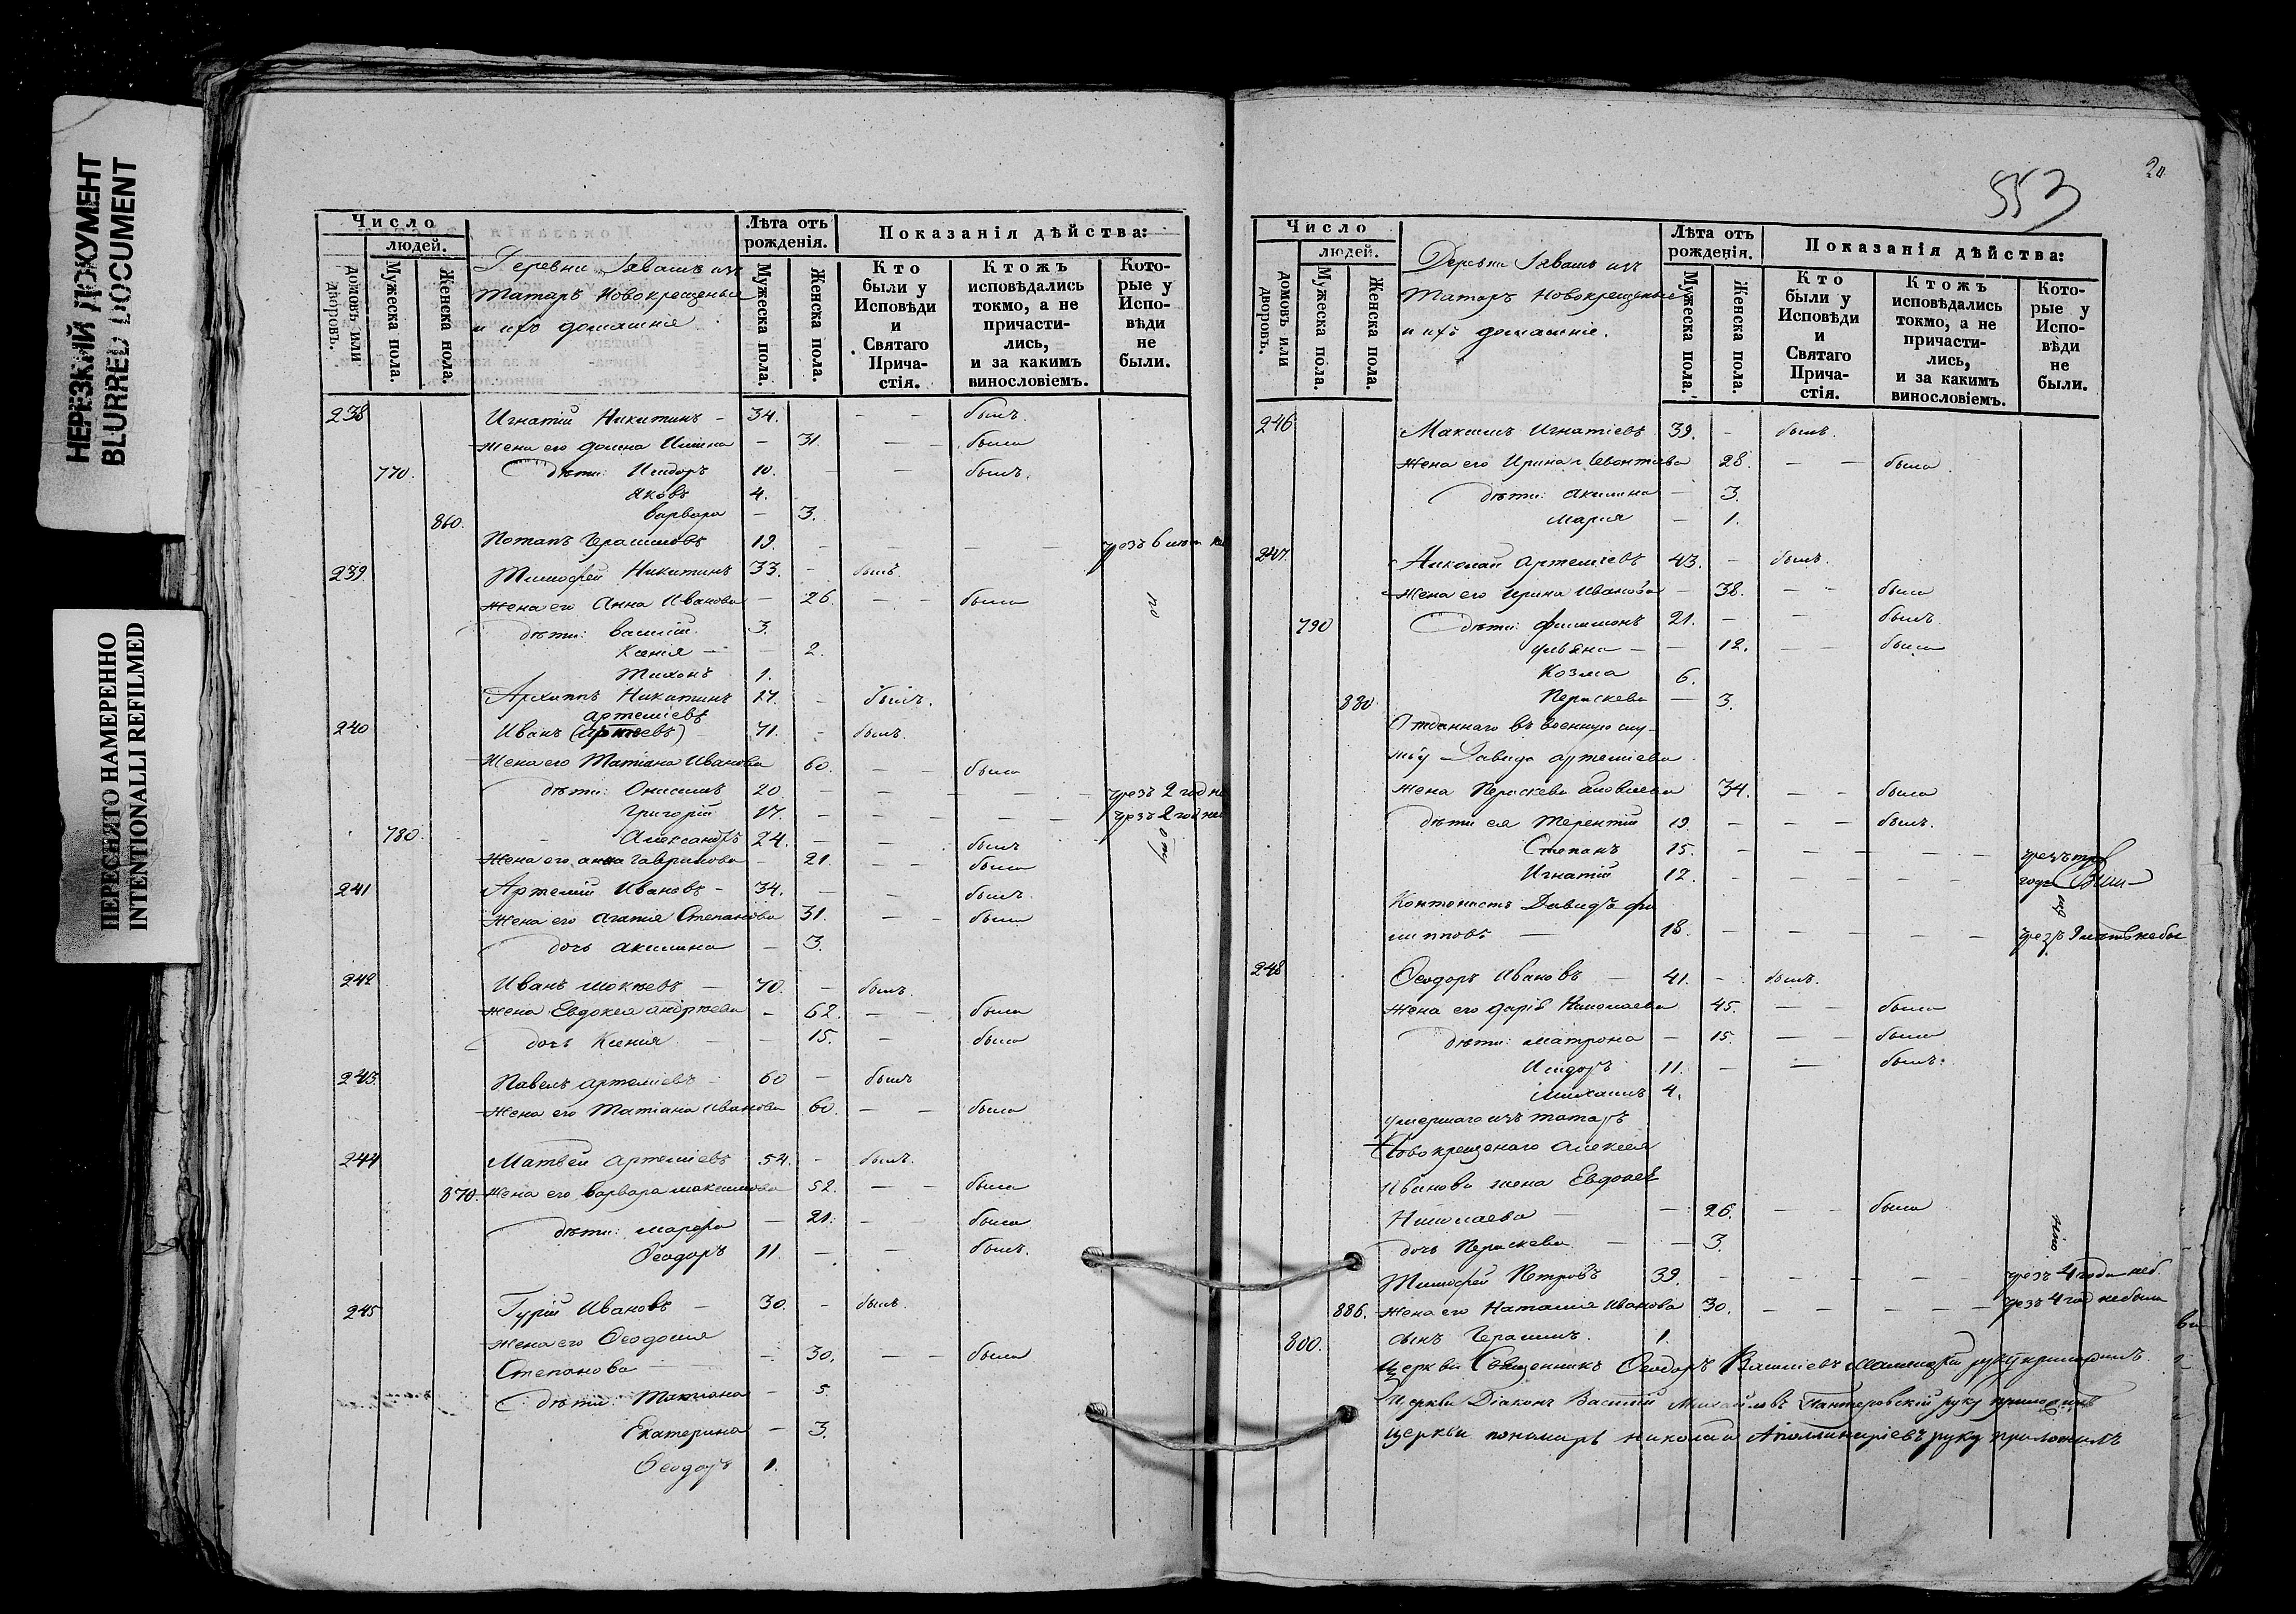 НЕРЕЗКИЙ ДОКУМЕНТ
BLURRED DOCUMENT
ПЕРЕСНЯТО НАМЕРЕННО
INTENTIONALLI REFILMED
Число
людей.
домовъ или дворовъ.
Мужеска пола.
Женска пола.
Деревни Явашъ изъ
Татаръ Новокрещеные
и ихъ домашніе
Лѣта отъ рожденія.
Мужеска пола.
Женска пола.
Показанія дѣйства:
Кто были у Исповѣди и Святаго Прича-стія.
Ктожъ исповѣдались токмо, а не причасти-лись, и за какимъ винословіемъ.
Кото-рые у Испо-вѣди не были.
238 Игнатій Никитинъ - 34. - - былъ.
Жена его - 31. - - была
770. дѣти: Исидоръ 10. - - былъ.
Яковъ 4.
860. Варвара - 3.
Потапъ Герасимовъ 19. - - - - чрезъ 6
239. Тимофей Никитинъ 33. - былъ.
Жена его Анна Иванова - 26. - - была
дѣти: Василій 3.
Ксенія - - 2.
Тихонъ 1.
Архиппъ Никитинъ 27. - былъ.
артеміевъ
240 Иванъ 71. - былъ.
Жена его Татіана Иванова 60. - - была
дѣти: Онисимъ 20. - - - - - чрезъ 2 год не
Григорій 17. - - - - - чрезъ 2 год не
780. Александръ 24. - - былъ
Жена его анна Гаврилова - 21. - - была
241 Артемій Ивановъ - 34. - - былъ.
Жена его агафія Степанова 31. - - была
дочь акилина - 3.
242 Иванъ - 70. - былъ.
Жена Евдокея андрѣева - 62. - - была
дочь Ксенія - - 15. - была
243. Павелъ артеміевъ - 60 - былъ
Жена его Татіана иванова 60. - - была
244 Матвей артеміевъ 54. - былъ.
870. Жена его варвара максимова 52. - - была
дѣти: марфа - 21. - - была
Ѳеодоръ 11. - - былъ.
245 Гурій Ивановъ - 30. - былъ.
Жена его Ѳеодосия
Степанова - - 30. - - была
дѣти: Татиана - 5.
Екатерина - 3.
Ѳеодоръ 1.
553
20
Число
людей.
домовъ или дворовъ.
Мужеска пола.
Женска пола.
Деревни Явашъ изъ
Татаръ Новокрещеные
и ихъ домашніе.
Лѣта отъ рожденія.
Мужеска пола.
Женска пола.
Показанія дѣйства:
Кто были у Исповѣди и Святаго Прича-стія.
Ктожъ исповѣдались токмо, а не причасти-лись, и за какимъ винословіемъ.
Кото-рые у Испо-вѣди не были.
246 Максимъ Игнатіевъ 39. - былъ.
Жена его Ирина Леонтиева 28. - - была
дѣти: акилина - 3.
Мария - 1.
247. Николай артеміевъ 43. - былъ.
Жена его Ирина Иванова - 38. - - была
790 дѣти: филимонъ 21. - - былъ.
ульяна - - 12. - - была
Козма 6.
880 Параскева - 3.
Отданнаго въ военную слу-
жбу Давида артемиева
жена Параскева 34. - - была
дѣти ея Терентій 19 - - былъ.
Степанъ 15. - - - - - чрезъ три
Игнатій 12. - - - - - года
Контонистъ Давидъ фи
липповъ - 18. - - - - - чрезъ 9 лѣтъ не был
248 Ѳеодоръ Ивановъ - 41. - былъ.
Жена его дарія Николаева 45. - - была
дѣти: матрона - 15. - - была
Исидоръ 11. - - былъ.
Михаилъ 4.
умершаго изъ татаръ
Новокрещенаго алексея
Иванова жена Евдокея
Николаева - - 26. - - была
дочь Параскева - - 3.
Тимофей Петровъ 39. - - - - чрезъ 4 года неб
886. Жена его Наталия Иванова 30. - - - - - чрезъ 4 год небыла
800. сынъ Герасимъ. 1.
Церкви Священникъ Ѳеодоръ Василіевъ руку приложилъ.
Церкви Діаконъ Василій Михайловъ Пантеровскій руку приложилъ
Церкви пономарь николай Аполлинаріевъ руку приложилъ